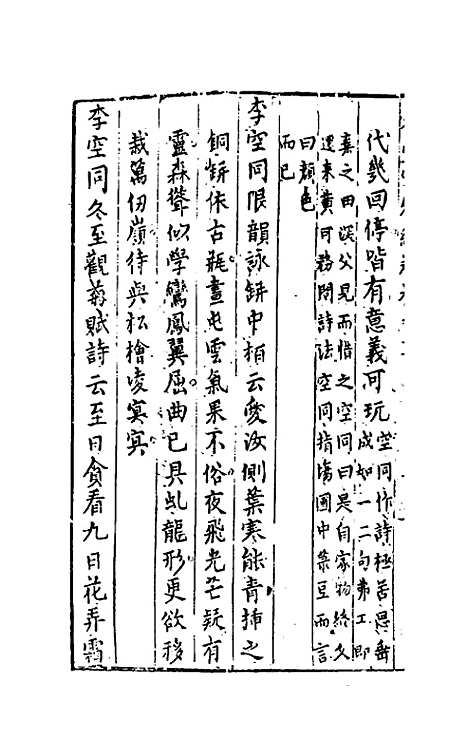 代幾回停踏有意義可玩空同作詩極苦思垂
成如一二句弗工即
棄之田深父見而惜之空同曰是自家物終久
還來黄河務問詩法空同指場圃中菉豆而言
曰顔色
而已
李空同限韻詠缾中栢云愛汝側葉寒能青挿之
銅缾依古甁晝屯雲氣果不俗夜飛光芒疑有
靈森聳似學鸞鳳翼屈曲已具虬龍形更欲移
栽萬仞嶺待與松檜凌寞寞
李空同冬至觀菊賦詩云至日貪看九日花弄霜